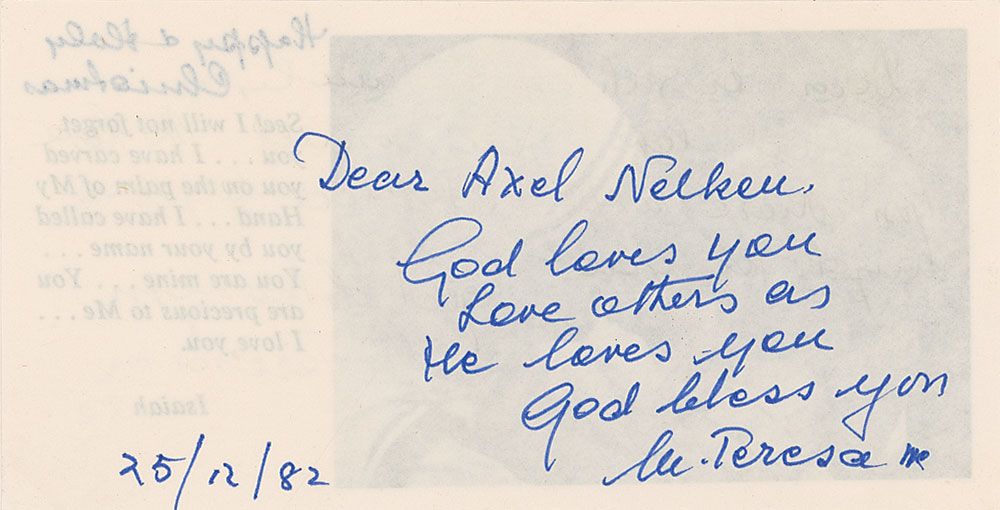 Dear Axel Nelken.
God loves you
Love others as
He loves you
God bless you
M. Teresa mc
25/12/82
Happy & Holy
Christmas
See! I will not forget
you . . . I have carved
you on the palm of My
Hand . . . I have called
you by your name . . .
You are mine . . . You
are precious to Me . . .
I love you.
Isaiah